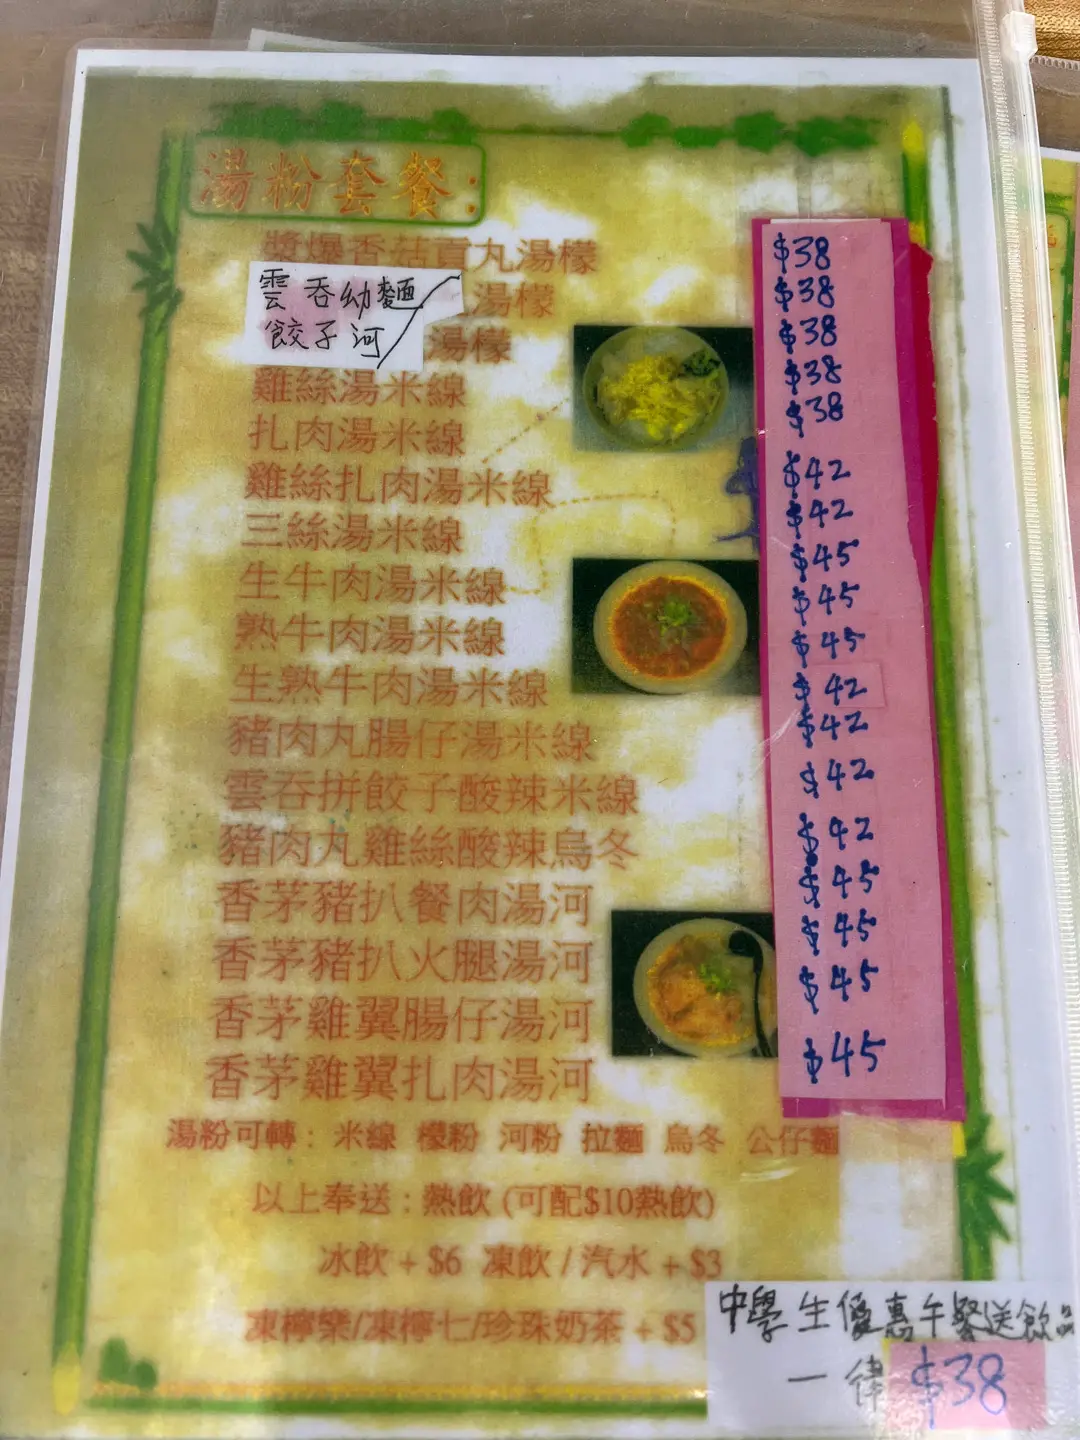 湯粉套餐:
醬爆香菇貢丸湯檬
雲吞幼麵
餃子河
湯檬
湯檬
雞絲湯米線
扎肉湯米線
雞絲扎肉湯米線
三絲湯米線
生牛肉湯米線
熟牛肉湯米線
生熟牛肉湯米線
豬肉丸腸仔湯米線
雲吞拼餃子酸辣米線
豬肉丸雞絲酸辣烏冬
香茅豬扒餐肉湯河
香茅豬扒火腿湯河
香茅雞翼腸仔湯河
香茅雞翼扎肉湯河
$38
$38
$38
$38
$38
$42
$42
$45
$45
$45
$42
$42
$42
$42
$45
$45
$45
$45
湯粉可轉: 米線 檬粉 河粉 拉麵 烏冬 公仔麵
以上奉送:熱飲 (可配$10熱飲)
冰飲 + $6 凍飲 / 汽水 + $3
凍檸樂/凍檸七/珍珠奶茶 + $5
中學生優惠午餐送飲品
一律 $38